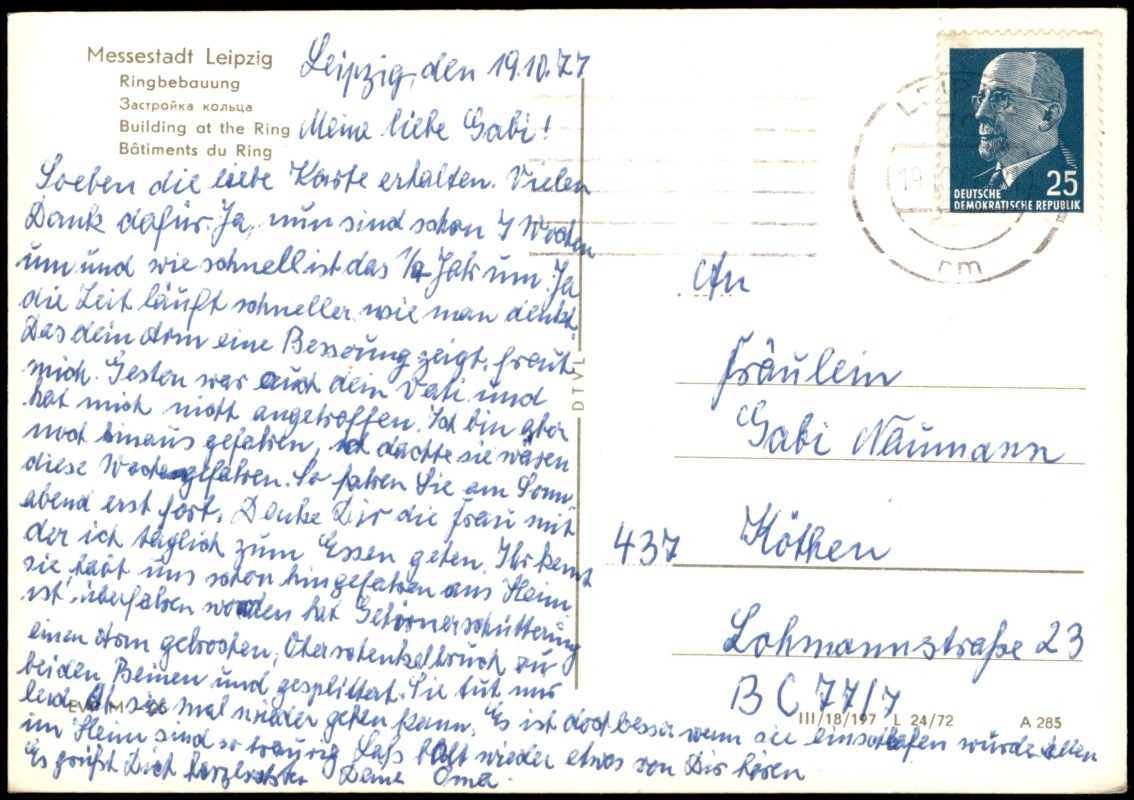 Messestadt Leipzig
Ringbebauung
Застройка кольца
Building at the Ring
Bâtiments du Ring
Leipzig, den 19.10.77
Meine liebe Gabi!
Soeben die liebe Karte erhalten. Vielen
Dank dafür. Ja, nun sind schon 7 Wochen
um und wie schnell ist das 1/4 Jahr um. Ja
die Zeit läuft schneller wie man denkt.
Das dein Arm eine Besserung zeigt, freut
mich. Gestern war auch dein Vati und
hat mich nicht angetroffen. Ich bin aber
noch hinaus gefahren, ich dachte sie wären
diese Woche gefahren. So fahren Sie am Sonn
abend erst fort. Denke Dir die Frau mit
der ich täglich zum Essen gehen. Ihr kennt
sie habt uns schon hingefahren ans Heim
ist überfahren worden hat Gehirnerschütterung
einen Arm gebrochen, Oberschenkelbruch an
beiden Beinen und gesplittert. Sie tut mir
leid. Ob sie mal wieder gehen kann. Es ist doch besser wenn sie einschlafen würde. Allen
im Heim sind so traurig. Laß bald wieder etwas von Dir hören
Es grüßt Dich herzlichster Deine Oma.
DTVL
LEIPZIG
19
rm
DEUTSCHE
DEMOKRATISCHE REPUBLIK
25
An
Fräulein
Gabi Naumann
437 Köthen
Lohmannstraße 23
BC 77/7
III/18/197 L 24/72 A 285